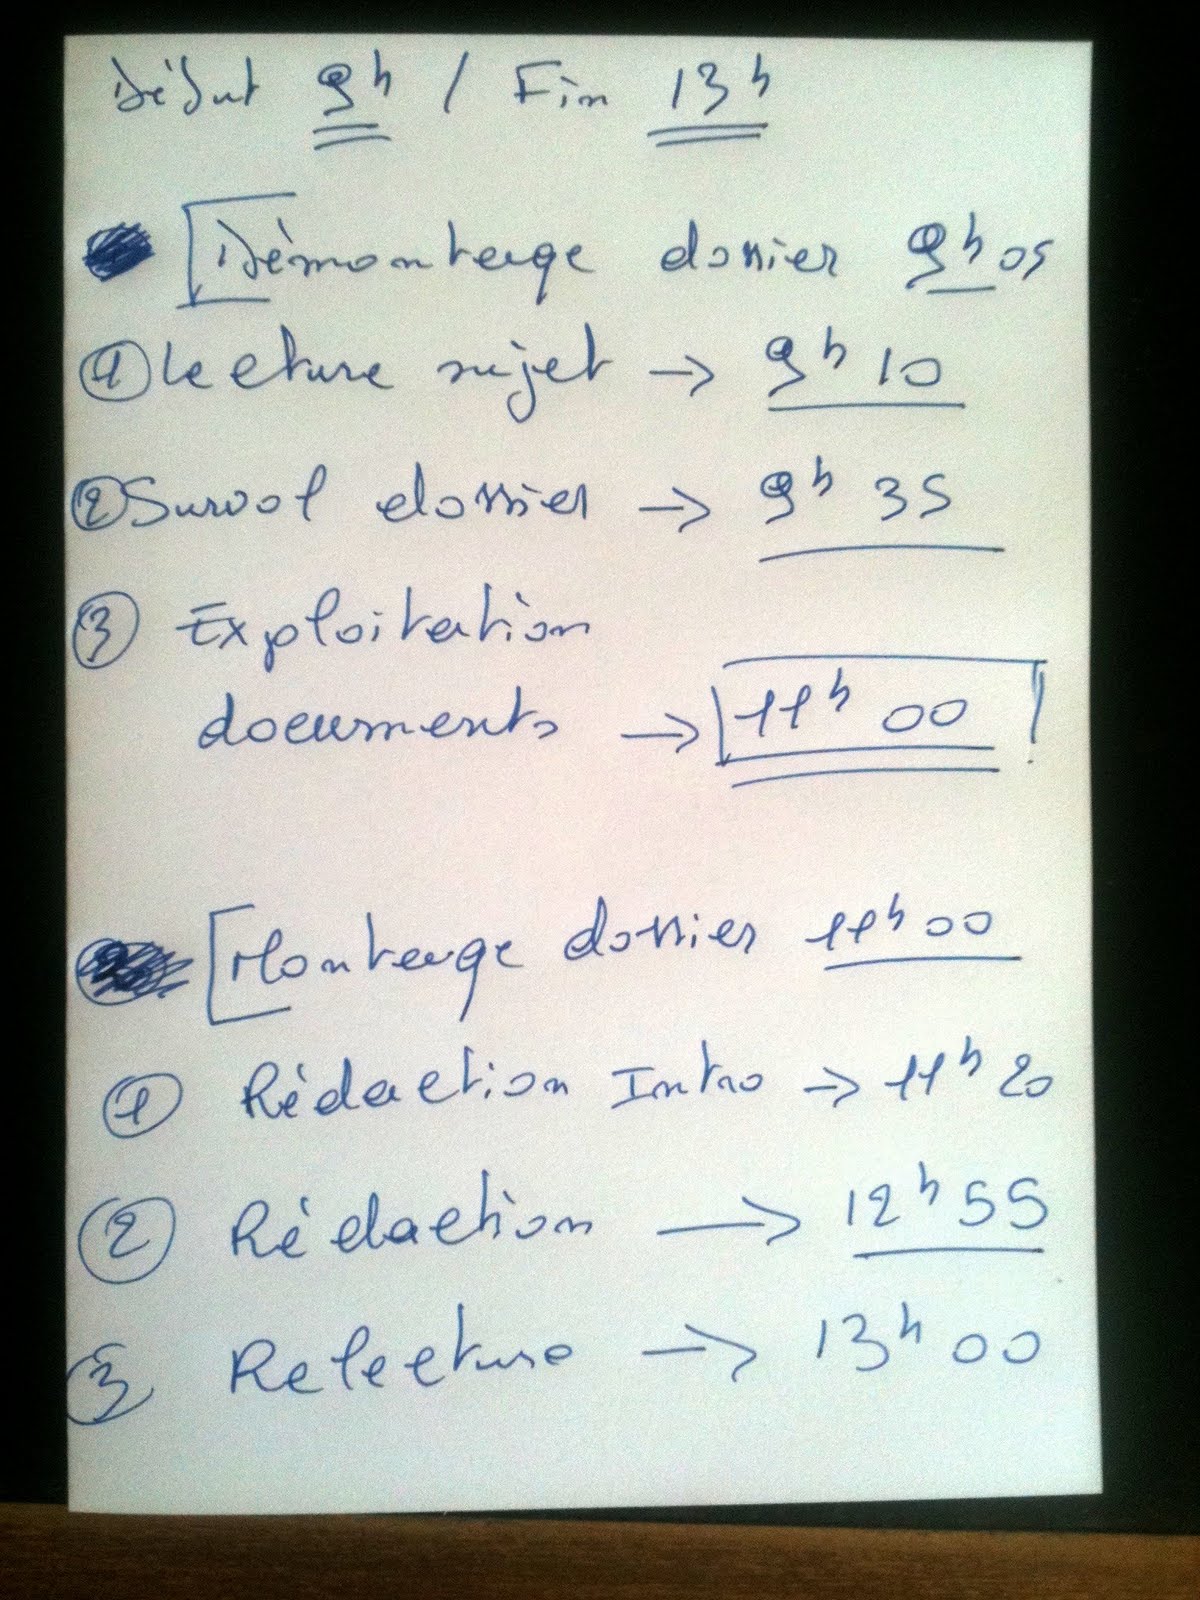 Début 9h / Fin 13h
Démontage dossier 9h05
① Lecture sujet → 9h 10
② Survol dossier → 9h 35
③ Exploitation
documents → 11h 00
Montage dossier 11h00
① Rédaction Intro → 11h 20
② Rédaction → 12h 55
③ Relecture → 13h 00